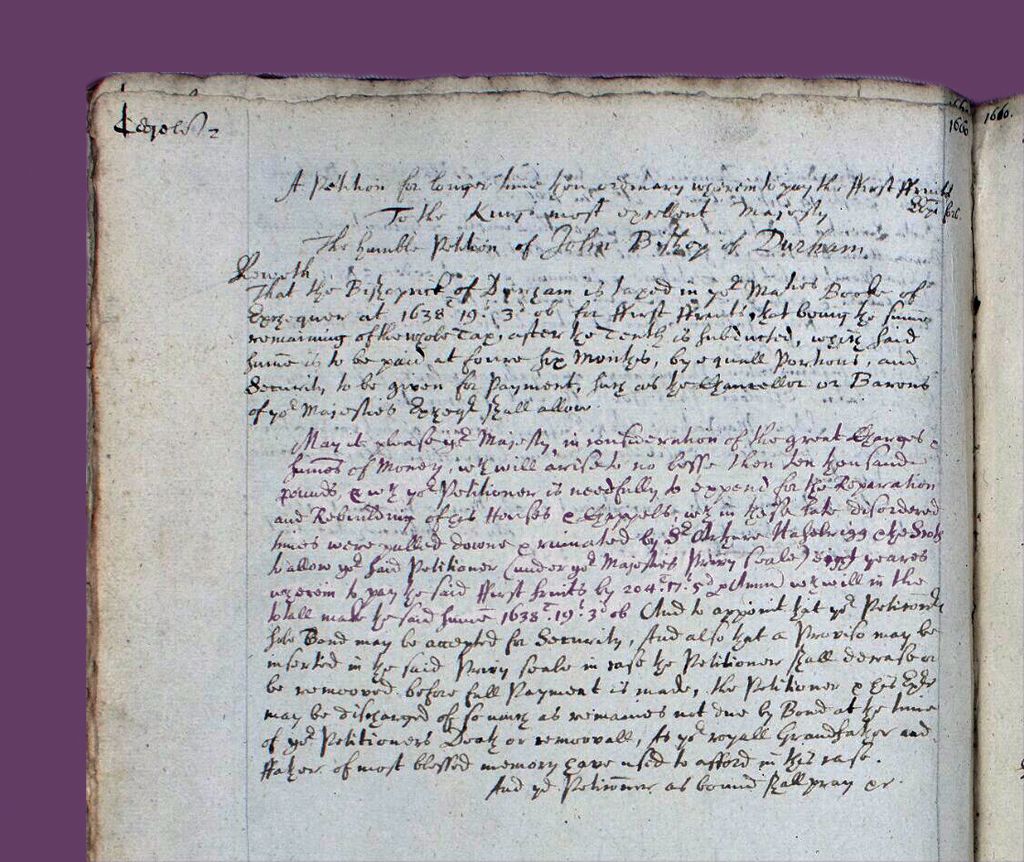 1660.
1660.
A Petition for longer time then ordinary wherein to pay the ffirst ffruits
To the Kings most exellent Majesty
The humble Petition of John Bishop of Durham.
Sheweth
That the Bishoprick of Durham is taxed in yor Maties Booke of
Exchequer at 1638l 19s 3d ob for ffirst ffruits, that being the summe
remaining of the whole Tax, after the Tenth is substracted, which said
summe is to be paid at foure six Months, by equall Portions, and
Security to be given for Payment, such as the Chancellor or Barons
of yor Majesties Excheqr shall allow.
May it please yor Majesty, in consideration of the great Charges &
summes of Money, wch will arise to no lesse then ten thousand
pounds, & wch yor Petitioner is needfully to expend for the Reparation
and Rebuilding of his Houses & Chappels, wch in these late disordered
times were pulled downe & ruinated by Sr Arthure Haselrigg & the Scots
to allow yor said Petitioner (under yor Majesties Privy seale) eight yeares
wherein to pay the said ffirst fruits by 204l 17s 5d p Annum wch will in the
totall make the said summe 1638l 19s 3d ob And to appoint that yor Petitioners
sole Bond may be accepted for Security, And also that a Proviso may be
inserted in the said Privy seale in case the Petitioner shall decease or
be remooved before full Payment is made, the Petitioner & his Exrs
may be discharged of so much as remaines not due by Bond at the time
of yor Petitioners Death or remoovall, As yor royall Grandfather and
ffather of most blessed memory have used to afford in this case.
And yor Petitioner as bound shall pray &c.